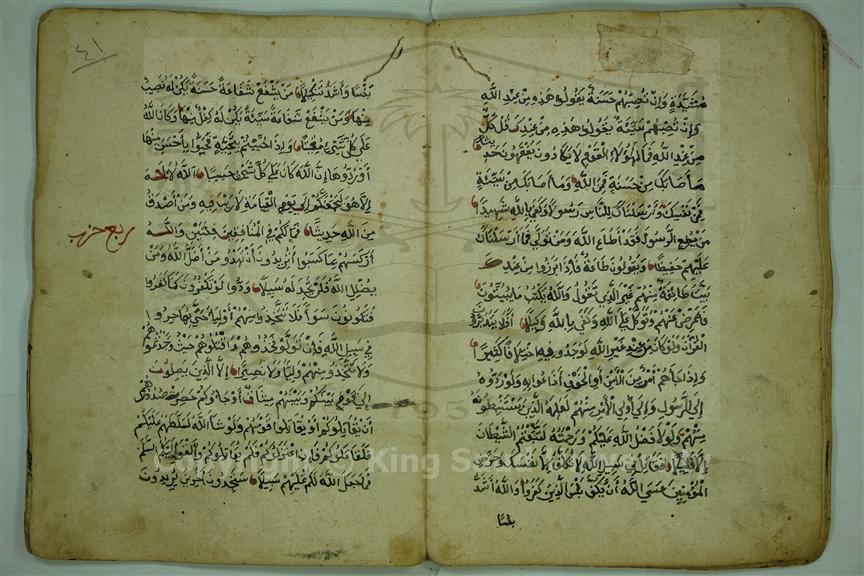 مشيدة وان تصبهم حسنة يقولوا هذه من عند الله
وان تصبهم سيئة يقولوا هذه من عندك قل كل
من عند الله فمال هؤلاء القوم لا يكادون يفقهون حديثا
ما اصابك من حسنة فمن الله وما اصابك من سيئة
فمن نفسك وارسلناك للناس رسولا وكفى بالله شهيدا
من يطع الرسول فقد اطاع الله ومن تولى فما ارسلناك
عليهم حفيظا ويقولون طاعة فاذا برزوا من عندك
بيت طائفة منهم غير الذي تقول والله يكتب ما يبيتون
فاعرض عنهم وتوكل على الله وكفى بالله وكيلا افلا يتدبرون
القران ولو كان من عند غير الله لوجدوا فيه اختلافا كثيرا
واذا جاءهم امر من الامن او الخوف اذاعوا به ولو ردوه
الى الرسول والى اولي الامر منهم لعلمه الذين يستنبطونه
منهم ولولا فضل الله عليكم ورحمته لاتبعتم الشيطان
الا قليلا فقاتل في سبيل الله لا تكلف الا نفسك وحرض
المؤمنين عسى الله ان يكف بأس الذين كفروا والله اشد
بأسا
٤١
بأسا واشد تنكيلا من يشفع شفاعة حسنة يكن له نصيب
منها ومن يشفع شفاعة سيئة يكن له كفل منها وكان الله
على كل شئ مقيتا واذا حييتم بتحية فحيوا باحسن منها
او ردوها ان الله كان على كل شئ حسيبا الله لا اله
الا هو ليجمعنكم الى يوم القيامة لا ريب فيه ومن اصدق
من الله حديثا فما لكم في المنافقين فئتين والله
ربع حزب
اركسهم بما كسبوا اتريدون ان تهدوا من اضل الله ومن
يضلل الله فلن تجد له سبيلا ودوا لو تكفرون كما كفروا
فتكونون سواء فلا تتخذوا منهم اولياء حتى يهاجروا
في سبيل الله فان تولوا فخذوهم واقتلوهم حيث وجدتموهم
ولا تتخذوا منهم وليا ولا نصيرا الا الذين يصلون
الى قوم بينكم وبينهم ميثاق او جاوكم حصرت صدورهم
ان يقاتلوكم او يقاتلوا قومهم ولو شاء الله لسلطهم عليكم
فلقاتلوكم فان اعتزلوكم فلم يقاتلوكم والقوا اليكم السلم
فما جعل الله لكم عليهم سبيلا ستجدون اخرين يريدون
Copyright © King Saud University
1957